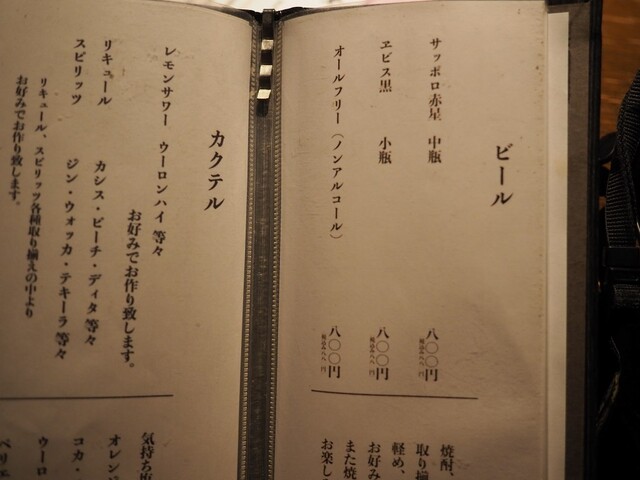 ビール
サッポロ赤星 中瓶 八〇〇円
ヱビス黒 小瓶 八〇〇円
オールフリー（ノンアルコール） 八〇〇円
焼酎、
取り揃
軽め、
お好み
また焼
お楽し
カクテル
レモンサワー ウーロンハイ 等々
お好みでお作り致します。
リキュール カシス・ピーチ・ディタ 等々
スピリッツ ジン・ウォッカ・テキーラ 等々
リキュール、スピリッツ各種取り揃えの中より
お好みでお作り致します。
気持ち
オレン
コカ・
ウーロ
ペリエ